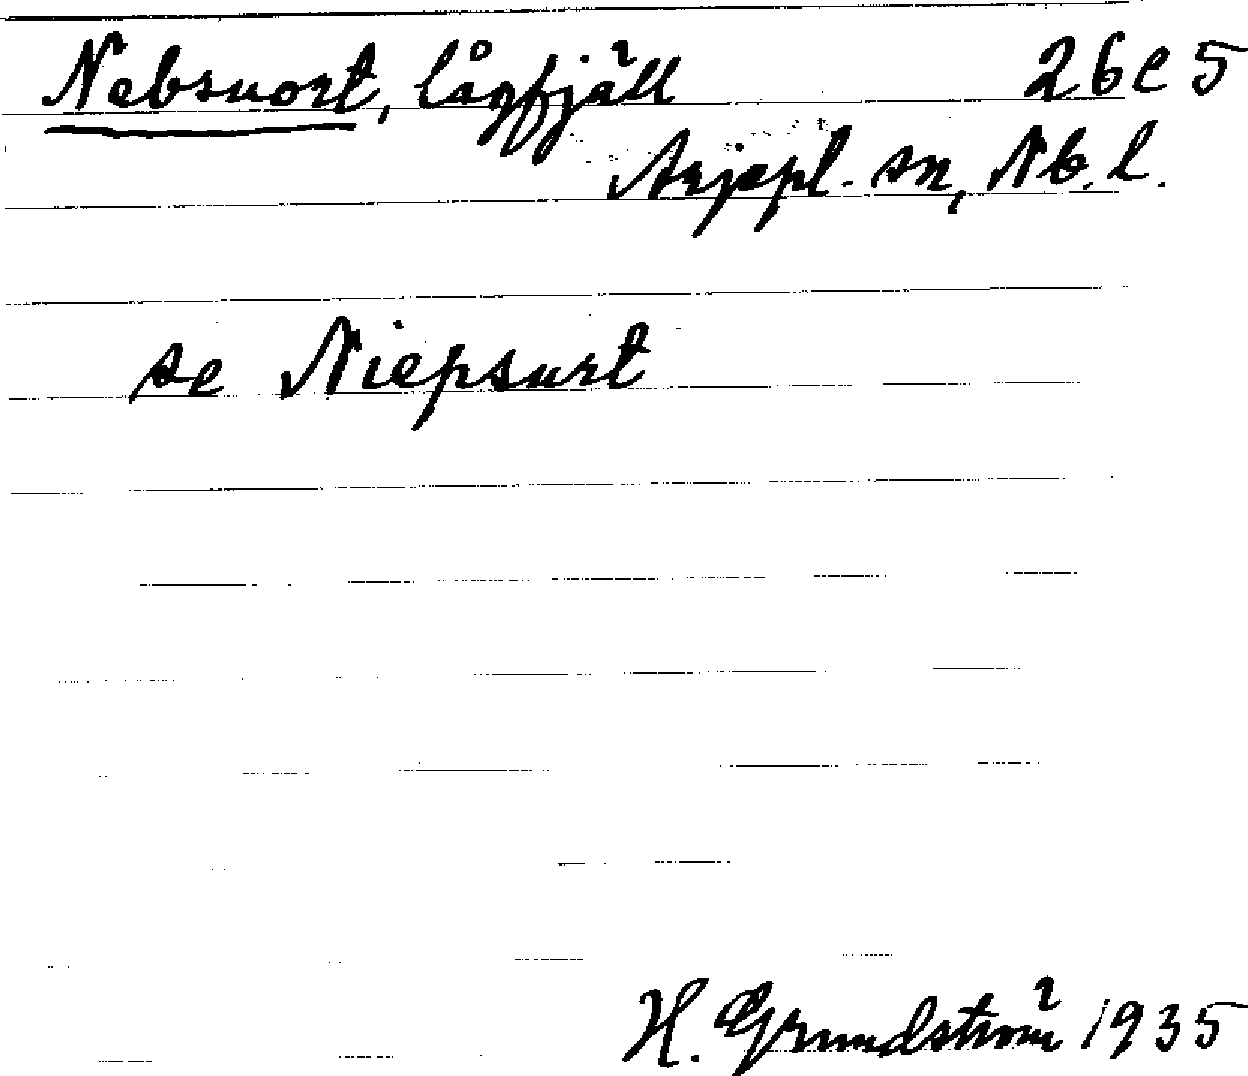 Nebsuort, lågfjäll 26e5
Arjepl. sn, Nb. l.
se Niepsurt
H. Grundström 1935